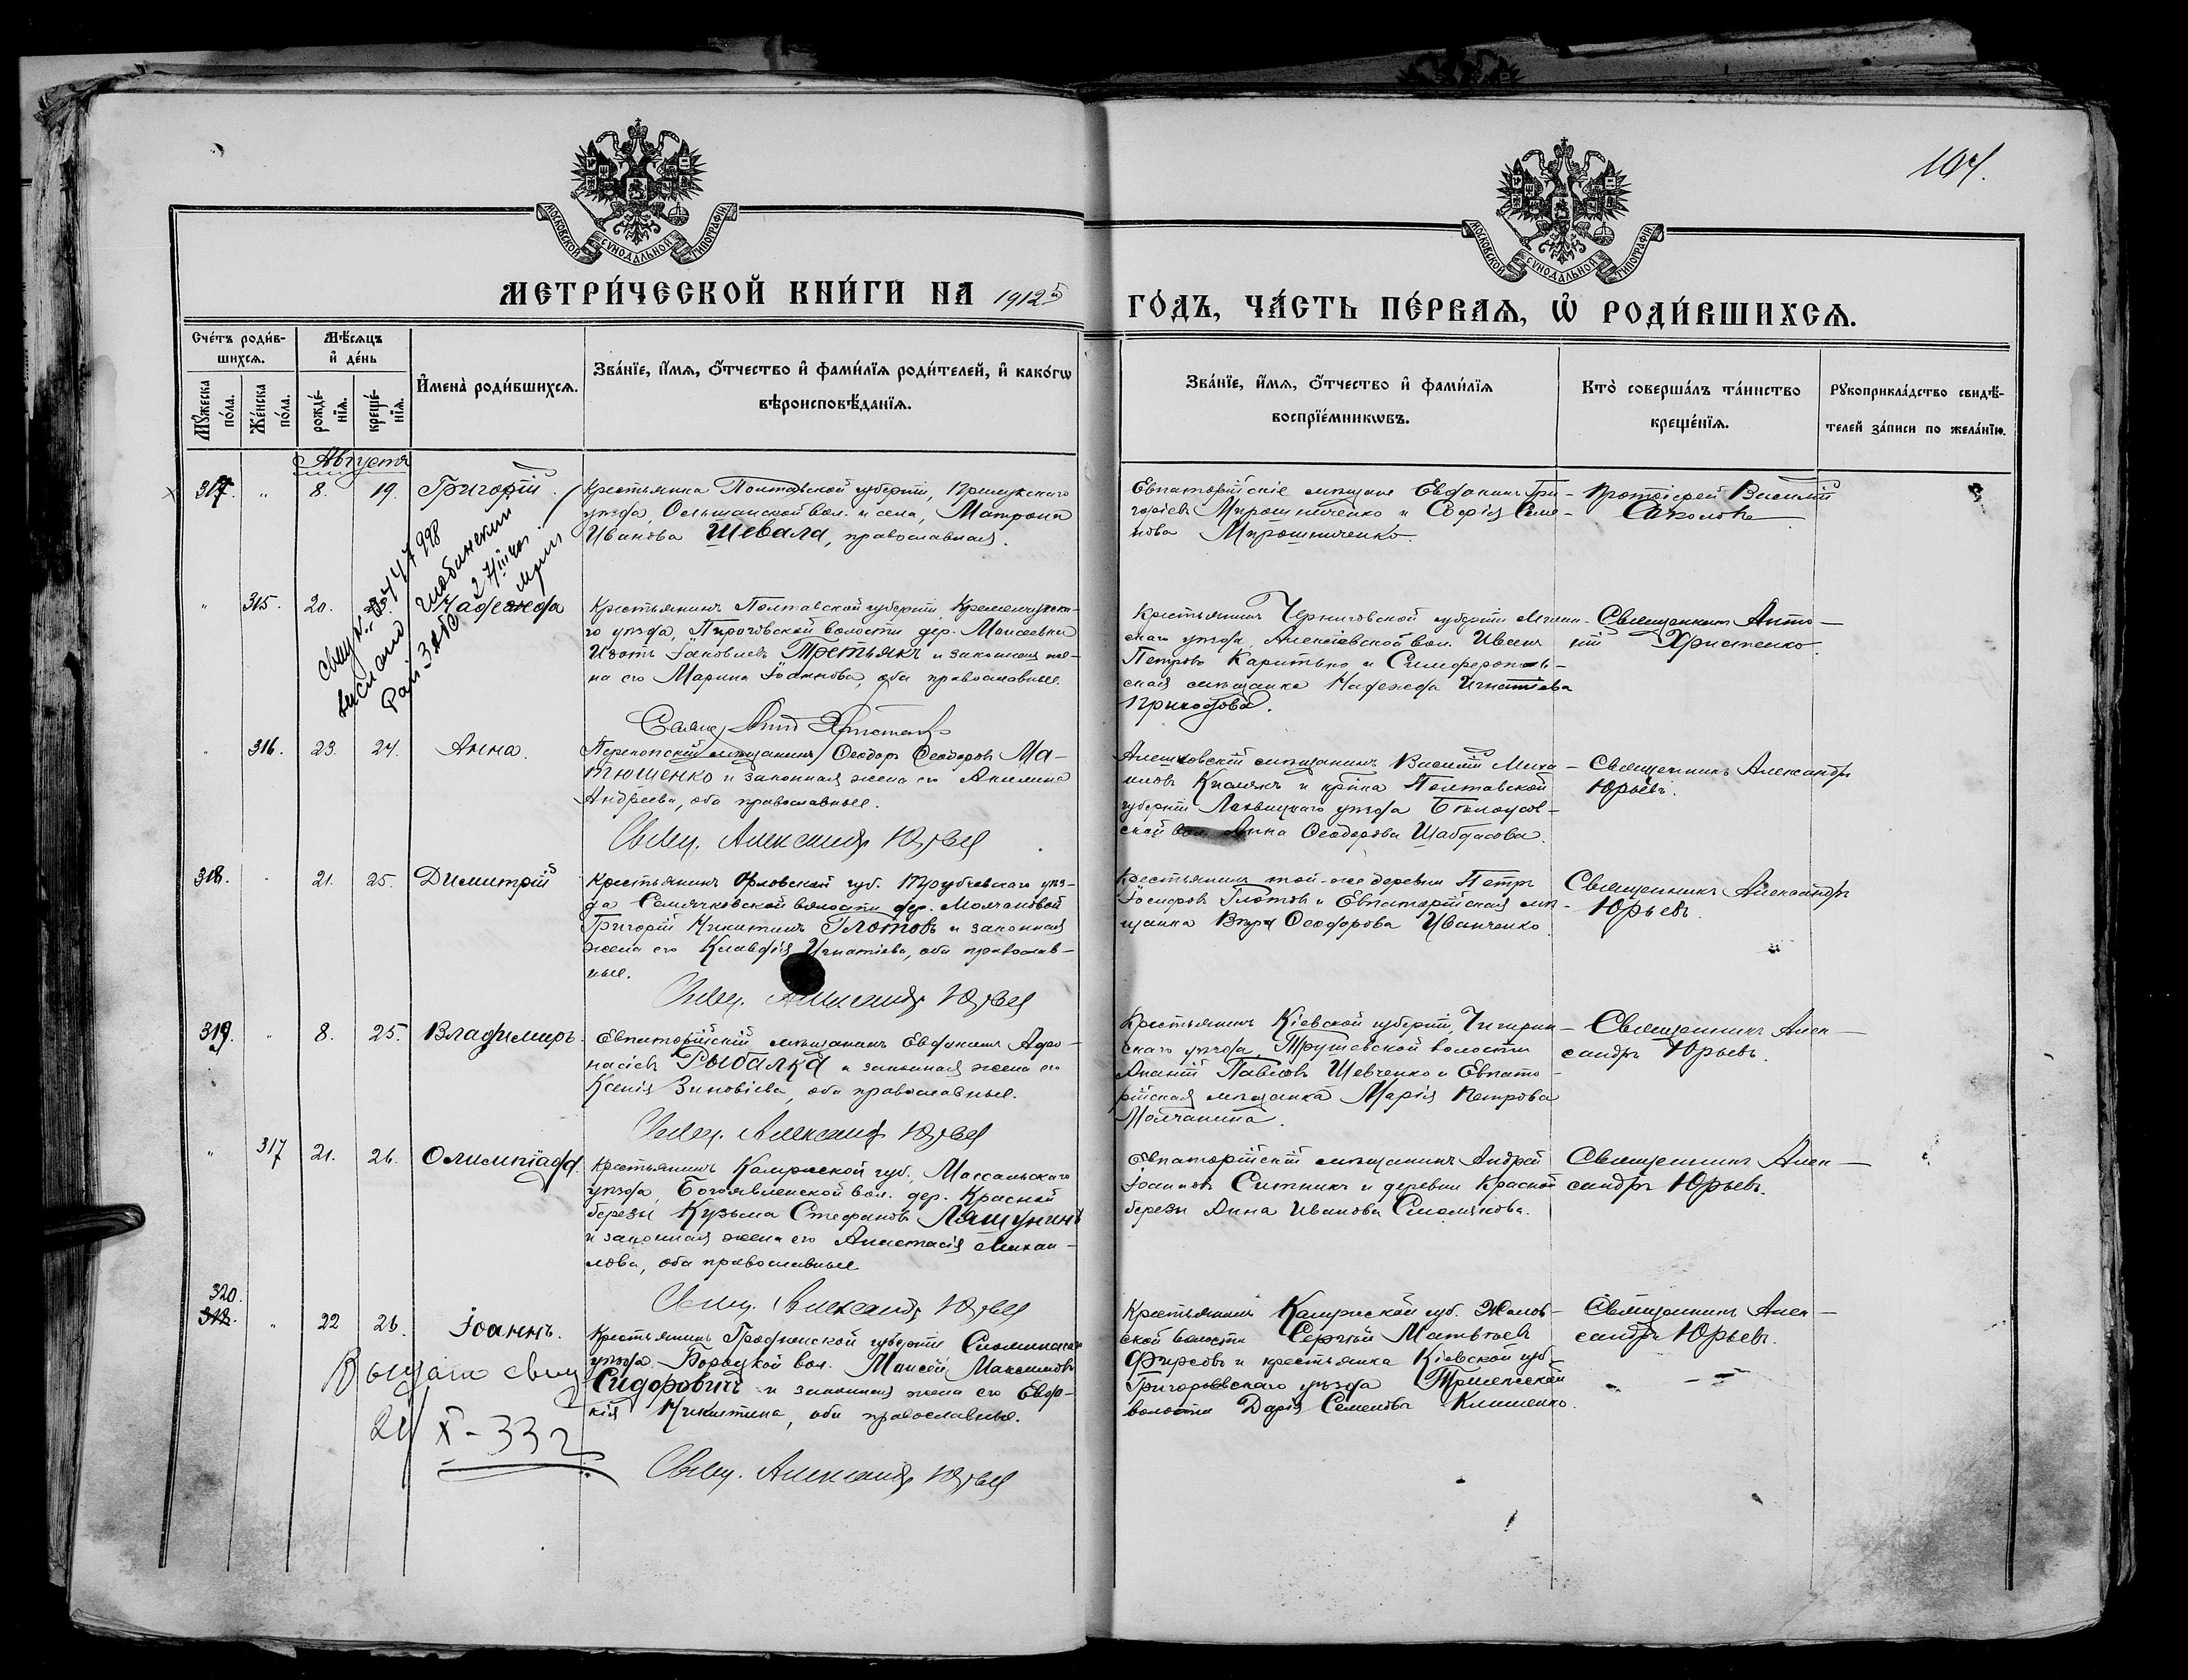 104.
МОСКОВСКОЙ СУНОДАЛЬНОЙ ТИПОГРАФІИ
МОСКОВСКОЙ СУНОДАЛЬНОЙ ТИПОГРАФІИ
МЕТРИ́ЧЕСКОЙ КНИ́ГИ НА 1912 5
ГО́ДЪ, ЧА́СТЬ ПЕ́РВАѦ, Ѡ РОДИ́ВШИХСѦ.
Сче́тъ роди́в-
шихсѧ.
Мѣ́сѧцъ
и҆ де́нь
Мꙋ́жеска
по́ла.
Же́нска
по́ла.
рожде́-
нїѧ.
креще́-
нїѧ.
И҆мена̀ роди́вшихсѧ.
Зва́нїе, и҆́мѧ, ѻ҆́тчество и҆ фами́лїѧ роди́телей, и҆ како́гѡ
вѣроисповѣ́данїѧ.
Зва́нїе, и҆́мѧ, ѻ҆́тчество и҆ фами́лїѧ
воспрїе́мникѡвъ.
Кто̀ соверша́лъ та́инство
креще́нїѧ.
Рꙋкоприкла́дство свидѣ́-
телей за́писи по жела́нїю.
Августъ
317. " 8. 19. Григорій.
Крестьянка Полтавской губерніи, Прилукскаго
уѣзда, Ольшанской вол. и села, Матрона
Иванова Шевала, православная.
Евпаторійскіе мѣщане Евдокимъ Гри-
горіевъ Мирошниченко и Софія Семе-
нова Мирошниченко.
Протоіерей Василій
Соколовъ
" 315. 20. Надежда
Крестьянинъ Полтавской губерніи Кременчугска-
го уѣзда, Пироговской волости дер. Моисеевки
Изотъ Іаковлевъ Третьякъ и законная же-
на его Марина Іоаннова, оба православные.
Крестьянинъ Черниговской губерніи Мглин-
скаго уѣзда, Алексѣевской вол. Иванъ
Петровъ Каритько и Симферополь-
ская мѣщанка Надежда Игнатіева
Приходова.
Священникъ Анто-
ній Христенко.
316. 23. 24. Анна.
Перекопскій мѣщанинъ Ѳеодоръ Ѳеодоровъ Ма-
тюшенко и законная жена его Акилина
Андреева, оба православные.
Свящ. Александръ Юрьевъ
Алешковскій мѣщанинъ Василій Миха-
иловъ Кислякъ и кр-нка Полтавской
губерніи Лохвицкаго уѣзда Бѣлоусов-
ской вол. Анна Ѳеодорова Шабдасова.
Священникъ Александръ
Юрьевъ.
318. 21. 25. Димитрій
Крестьянинъ Орловской губ. Трубчевскаго уѣз-
да Семячковской волости дер. Молчановой
Григорій Никитинъ Глотовъ и законная
жена его Клавдія Игнатіева, оба православ-
ные.
Свящ. Александръ Юрьевъ
Крестьянинъ той-же деревни Петръ
Іосифовъ Глотовъ и Евпаторійская мѣ-
щанка Вѣра Ѳеодорова Иванченко
Священникъ Александръ
Юрьевъ.
319. " 8. 25. Владимиръ.
Евпаторійскій мѣщанинъ Евдокимъ Афо-
насіевъ Рыбалка и законная жена его
Ксенія Зиновіева, оба православные.
Свящ. Александръ Юрьевъ
Крестьянинъ Кіевской губерніи, Чигирин-
скаго уѣзда, Трушевской волости
Ананій Павловъ Шевченко и Евпато-
рійская мѣщанка Марія Петрова
Молчанина.
Священникъ Алек-
сандръ Юрьевъ.
" 317 21. 26. Олимпіада.
Крестьянинъ Калужской губ., Массальскаго
уѣзда, Богоявленской вол. дер. Красной
березы Кузьма Стефановъ Ляшунинъ
и законная жена его Анастасія Михаи-
лова, оба православные
Свящ. Александръ Юрьевъ
Евпаторійскій мѣщанинъ Андрей
Іоанновъ Ситникъ и деревни Красной
березы Анна Иванова Смолякова.
Священникъ Алек-
сандръ Юрьевъ.
320.
318. " 22 26. Іоаннъ.
Крестьянинъ Гродненской губерніи Слонимскаго
уѣзда. Бороцкой вол. Моисей Максимовъ
Сидоровичъ и законная жена его Евдо-
кія Никитина, оба православные.
Свящ. Александръ Юрьевъ
Крестьянинъ Калужской губ. Жилов-
ской волости Сергѣй Матвѣевъ
Фирсовъ и крестьянка Кіевской губ.
волости Дарія Семенова Клименко.
Священникъ Алек-
сандръ Юрьевъ.
Выдано свид
24/X-332